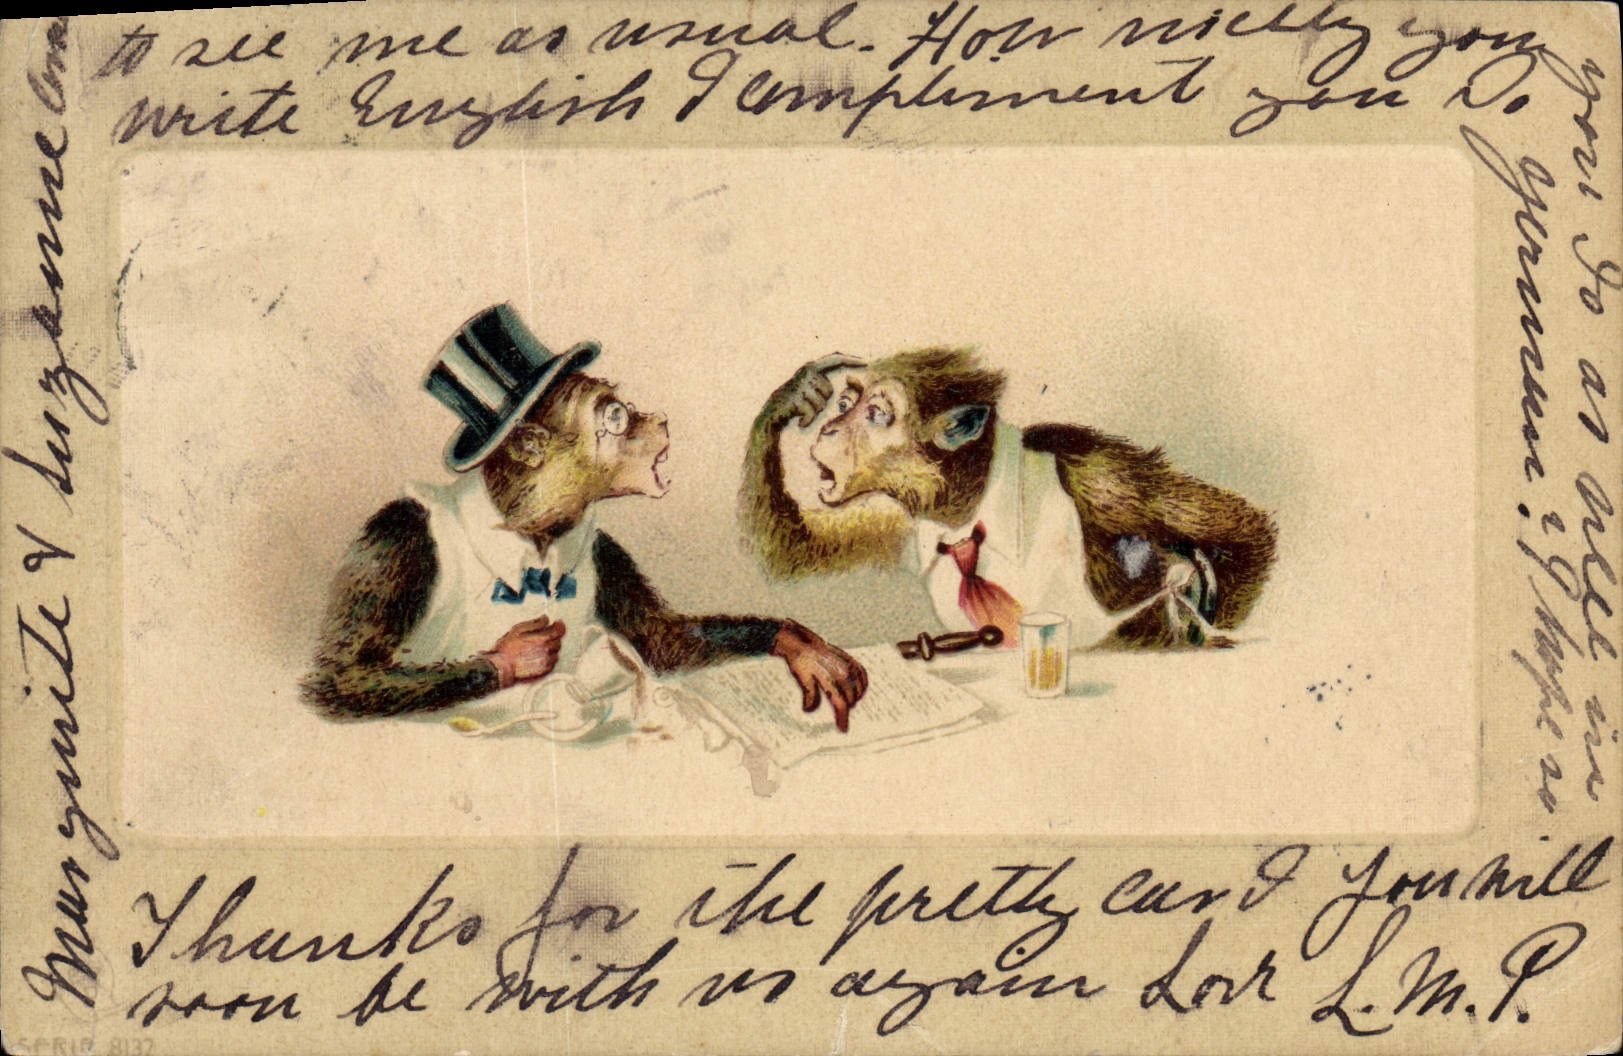 Thanks for the pretty card you will
soon be with us again Love L. M. P.
Marguite & Suzanne
to see me as usual. How nicely you
write English I compliment you Do
you do as well in
german? I hope so.
SERIE 8137